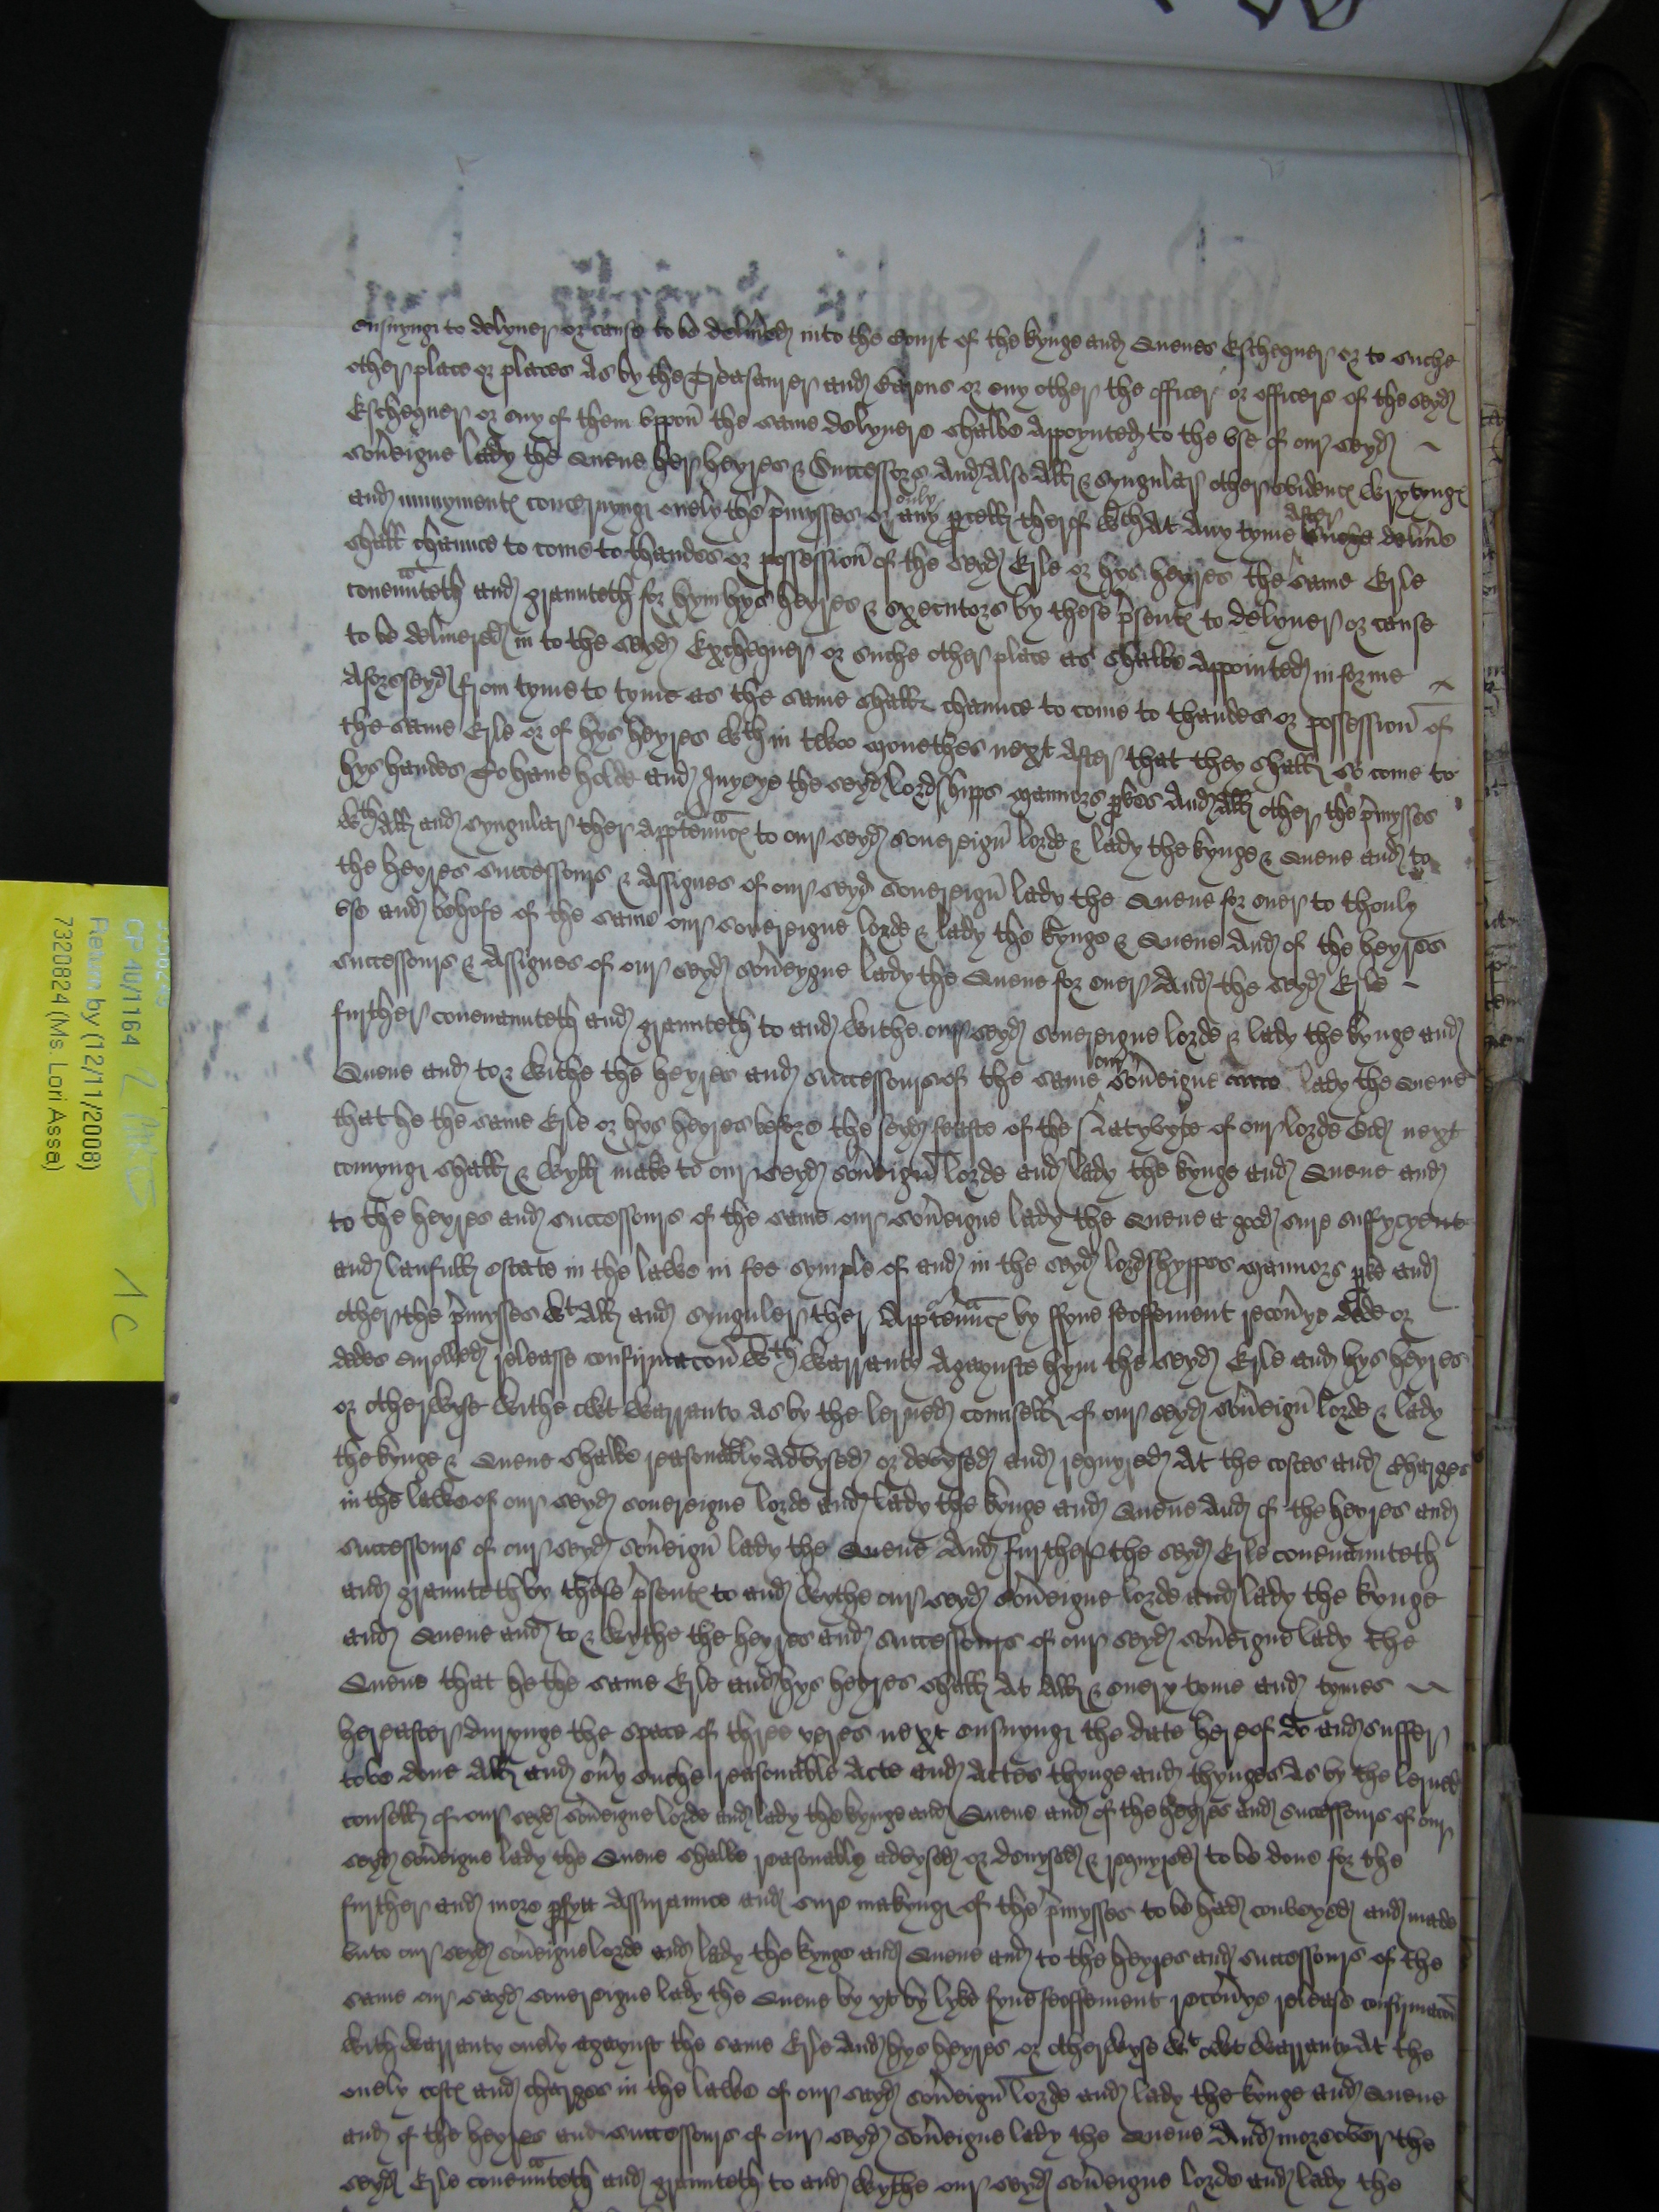 ensuyng to delyuer or cause to be deliũed into the Court of the kynge and Quenes Eschequer or to suche
other place or places As by the Treasaurer and Barons or eny other the officer or officers of the seyd
Eschequer or eny of them vppon the same delyuere shalbe Appoynted to the vse of our seyd
soũeigne lady the Quene her heyres & Successors And Also All & Synguler other evidence wrytyng
and mynyment concernyng onely the p̃mysses or any only p̱cell therof wch At Any tyme After suche deliũe
shall chaunce to come to thandes or possession of the seyd Erle or hys heyres the same Erle
conenñteth and graunteth for hym hys heyres & executors by these p̃sent to delyuer or cause
to be deliuered in to the seyd Exchequer or suche other place as shalbe Appointed in forme
Aforeseyd from tyme to tyme as the same shall chaunce to come to thandes or possession of
the same Erle or of hys heyres wthin twoo monethes next After that they shall so come to
hys handes To haue holde and Inyoye the seyd lordshipps mannors p̱kes And All other the p̃mysses
wth All and synguler ther Apptenñc to our seyd souereign lorde & lady the kynge & Quene and to
the heyres successours & Assignes of our seyd souereign lady the Quene for euer to thonly
vse and behofe of the same our souereigne lorde & lady the kynge & Quene And of the heyres
successours & Assignes of our seyd soũeygne lady the Quene for euer And the seyd Erle
further couenaunteth and graunteth to and withe our seyd souereigne lorde & lady the kynge and
Quene and to & withe the heyres and successours of the same our soũeigne lady the Quene
that he the same Erle or hys heyres before the seyd feaste of the Natyvyte of our lorde God next
comyng shall & wyll make to our seyd soũeign lorde and lady the kynge and Quene and
to the heyres and successours of the same our soũeigne lady the Quene a good sure suffycyent
and laufull estate in the lawe in fee symple of and in the seyd lordshyppes mannors p̱ke and
other the p̃mysses wt All and synguler ther Apptenñc by ffyne feoffement recoũye dede or
dedes enrolled releasse confirmacon wth warranty Agaynste hym the seyd Erle and hys heyres
or otherwyse withe owt warranty As by the lerned counsell of our seyd soũeign lorde & lady
the kynge & Quene shalbe reasonably Advysed or devysed and requyred At the costes and Charges
in the lawe of our seyd souereigne lorde and lady the kynge and Quene And of the heyres and
successours of our seyd soũeign lady the Quene And further the seyd Erle couenaunteth
and graunteth by these p̃sent to and wythe our seyd soũeigne lorde and lady the kynge
and Quene and to & wythe the heyres and successours of our seyd soũeigne lady the
Quene that he the same Erle and hys heyres shall At All & euery tyme and tymes
hereafter durynge the space of three yeres next ensuyng the date hereof do and suffer
to be done All and eũy suche reasonable Acte and Actes thynge and thynges As by the lerned
counsell of our seyd soũeigne lorde and lady the kynge and Quene and of the heyres and successours of our
seyd soũeigne lady the Quene shalbe reasonably advysed or deuysed & requyred to be done for the
further and more p̱fytt Assuraunce and sure makyng of the p̃mysses to be had conveyed and made
vnto our seyd soũeigne lorde and lady the kynge and Quene and to the heyres and successours of the
same our seyd souereigne lady the Quene by yt by lyke fyne feoffement recoũye release confirmacon
with warranty onely agaynst the same Erle And hys heyres or otherwyse wt owt warranty At the
onely cost and charges in the lawe of our seyd soũeign lorde and lady the kynge and Quene
and of the heyres and successours of our seyd soũeigne lady the Quene And moreover the
seyd Erle couenñteth and graunteth to and wythe our seyd soũeigne lorde and lady the
CP 40/1164
Return by (12/11/2008)
7320824 (Ms. Lori Assa)
1 C